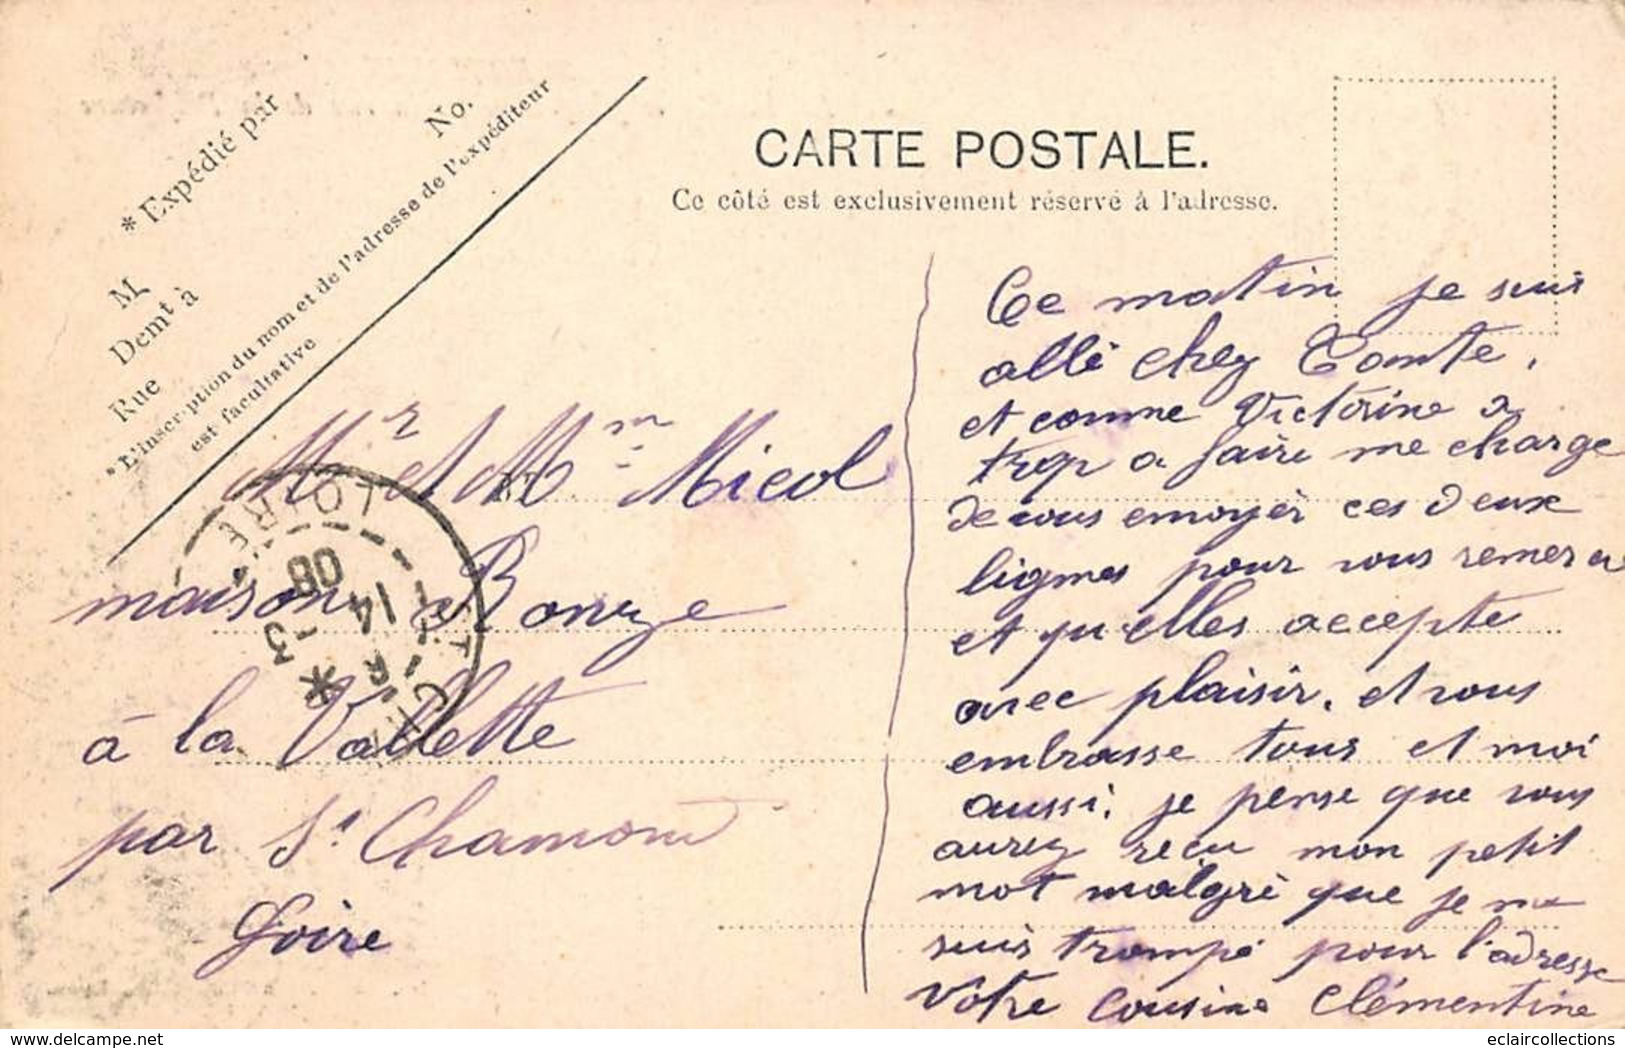 CARTE POSTALE.
Ce côté est exclusivement réservé à l'adresse.
* Expédié par
No.
M
Demt à
Rue
* L'inscription du nom et de l'adresse de l'expéditeur
est facultative
Mr et Mme Micol
maison Ronze
à la Vallette
par St Chamond
Loire
LOIRE
14
08
Ce matin je suis
allé chez Comte,
et comme Victorine a
trop a faire me charge
de vous envoyér ces deux
lignes pour vous
et qu'elles accepte
avec plaisir, et vous
embrasse tous et moi
aussi. je pense que vous
aurez recu mon petit
mot malgrè que je me
suis trompé pour l'adresse
Votre Cousine Clémentine
www.delcampe.net
eclaircollections